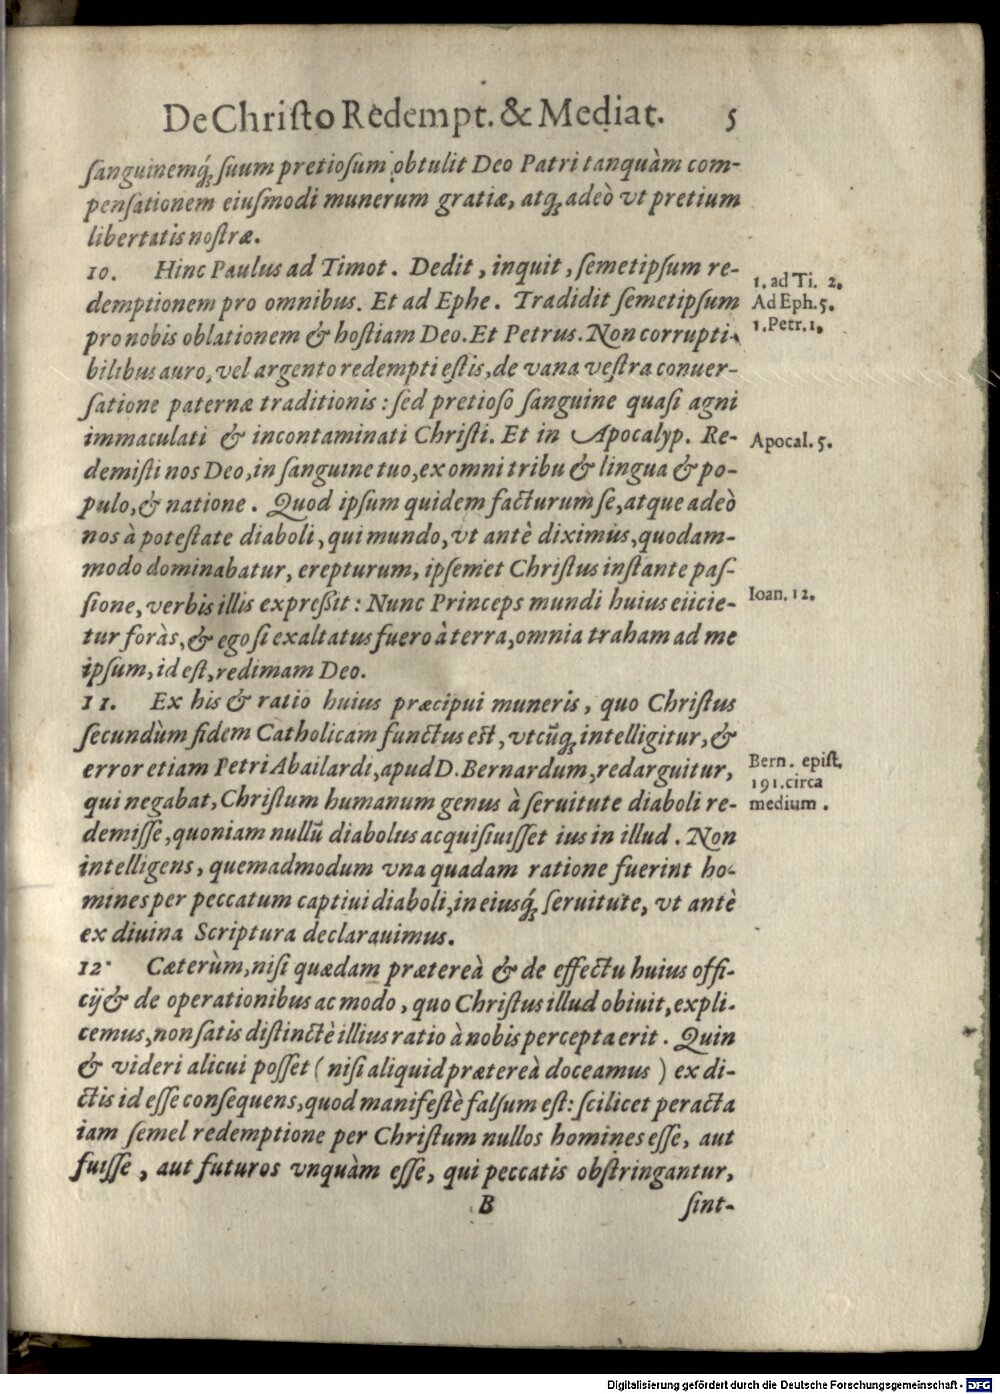 De Christo Redempt. & Mediat. 5
ſanguinemq́ꝫ ſuum pretioſum obtulit Deo Patri tanquàm com-
penſationem eiuſmodi munerum gratiæ, atqꝫ adeò vt pretium
libertatis noſtræ.
10. Hinc Paulus ad Timot. Dedit, inquit, ſemetipſum re-
1. ad Ti. 2.
demptionem pro omnibus. Et ad Ephe. Tradidit ſemetipſum
Ad Eph. 5.
pro nobis oblationem & hoſtiam Deo. Et Petrus. Non corrupti-
1. Petr. 1.
bilibus auro, vel argento redempti eſtis, de vana veſtra conuer-
ſatione paternæ traditionis: ſed pretioſo ſanguine quaſi agni
immaculati & incontaminati Chriſti. Et in Apocalyp. Re-
Apocal. 5.
demiſti nos Deo, in ſanguine tuo, ex omni tribu & lingua & po-
pulo, & natione. Quod ipſum quidem facturum ſe, atque adeò
nos à poteſtate diaboli, qui mundo, vt antè diximus, quodam-
modo dominabatur, erepturum, ipſemet Chriſtus inſtante paſ-
ſione, verbis illis expreßit: Nunc Princeps mundi huius eiicie-
Ioan. 12.
tur foràs, & ego ſi exaltatus fuero à terra, omnia traham ad me
ipſum, id eſt, redimam Deo.
11. Ex his & ratio huius præcipui muneris, quo Chriſtus
ſecundùm fidem Catholicam functus eſt, vtcūqꝫ intelligitur, &
error etiam Petri Abailardi, apud D. Bernardum, redarguitur,
Bern. epiſt.
qui negabat, Chriſtum humanum genus à ſeruitute diaboli re-
191. circa
medium.
demiſſe, quoniam nullū diabolus acquiſiuiſſet ius in illud. Non
intelligens, quemadmodum vna quadam ratione fuerint ho-
mines per peccatum captiui diaboli, in eiusq́ꝫ ſeruitute, vt antè
ex diuina Scriptura declarauimus.
12. Cæterùm, niſi quædam prætereà & de effectu huius offi-
cij & de operationibus ac modo, quo Chriſtus illud obiuit, expli-
cemus, non ſatis diſtinctè illius ratio à nobis percepta erit. Quin
& videri alicui poſſet (niſi aliquid prætereà doceamus) ex di-
ctis id eſſe conſequens, quod manifeſtè falſum eſt: ſcilicet peracta
iam ſemel redemptione per Chriſtum nullos homines eſſe, aut
fuiſſe, aut futuros vnquàm eſſe, qui peccatis obſtringantur,
B ſint-
Digitalisierung gefördert durch die Deutsche Forschungsgemeinschaft - DFG